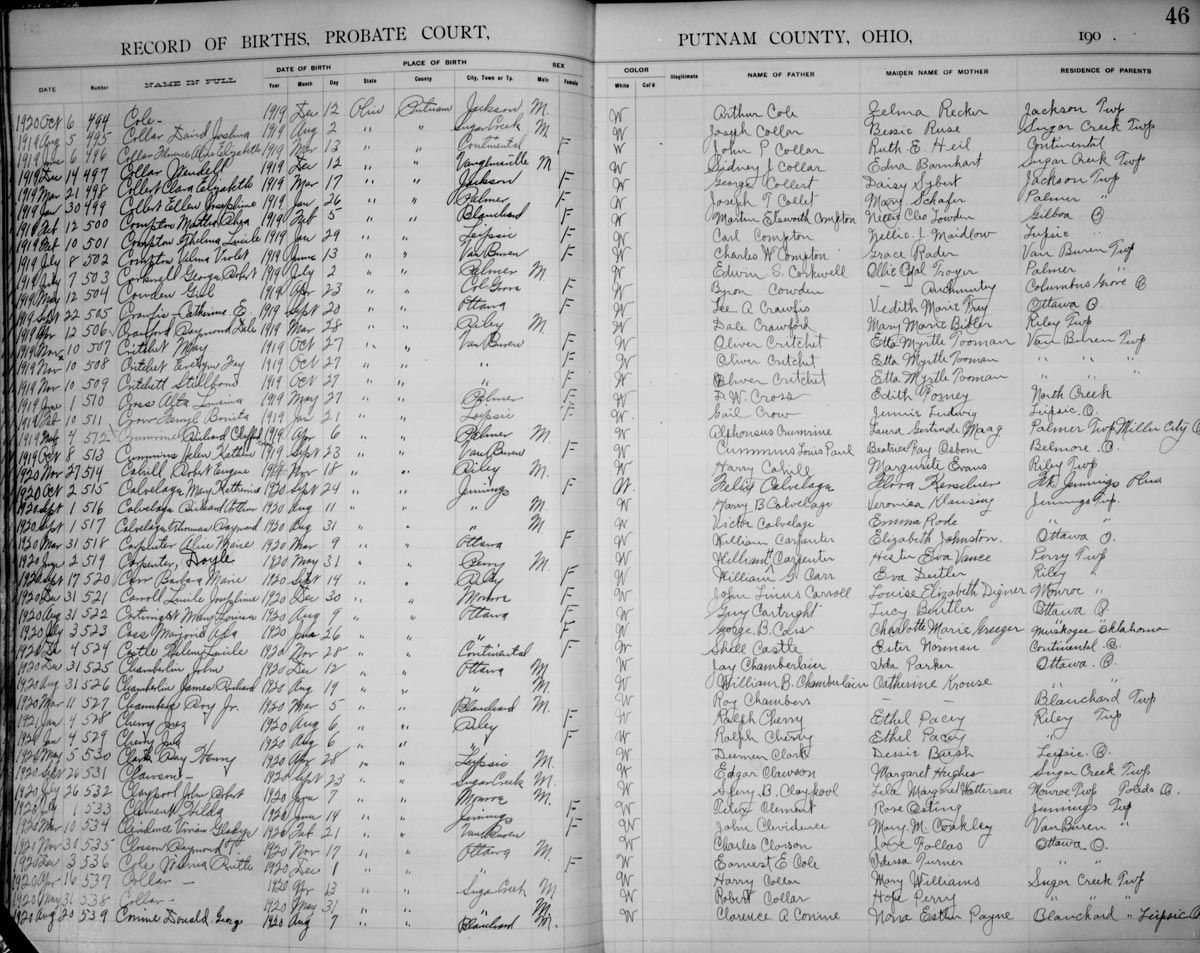 46
RECORD OF BIRTHS, PROBATE COURT, PUTNAM COUNTY, OHIO, 190 .
DATE OF BIRTH PLACE OF BIRTH SEX COLOR
DATE Number NAME IN FULL Year Month Day State County City, Town or Tp. Male Female White Col'd Illegitimate NAME OF FATHER MAIDEN NAME OF MOTHER RESIDENCE OF PARENTS
1920 Oct 6 494 Cole - 1919 Dec 12 Ohio Putnam Jackson M. W Arthur Cole Zelma Recker Jackson Twp
1919 Aug 5 495 Collar David Joshua 1919 Aug 2 " " Sugar Creek M W Joseph Collar Bessie Ruse Sugar Creek Twp
1919 6 496 Collar Alice Elizabeth 1919 Mar 13 " " Continental F W John P Collar Ruth E. Heil Continental
1919 Dec 14 497 Collar Wendell 1919 Dec 12 " " Vaughnsville M W Sidney J Collar Edna Barnhart Sugar Creek Twp
1919 Mar 21 498 Collert Clara Elizabeth 1919 Mar 17 " " Jackson F W George Collert Daisy Sybert Jackson Twp
1919 Jan 30 499 Collet Ellen Josephine 1919 Jan 26 " " Palmer F W Joseph T Collet Mary Schafer Palmer "
1919 Oct 12 500 Compton Martha 1919 Feb 5 " " Blanchard F W Martin Elsworth Compton Nettie Cleo Lowden Gilboa O.
1919 10 501 Compton Thelma Lucile 1919 Jan 29 " " Leipsic F W Carl Compton Nellie J. Maidlow Leipsic "
1919 July 8 502 Compton Velma Violet 1919 June 13 " " Van Buren F W Charles W Compton Grace Rader Van Buren Twp
1919 July 7 503 Corkwell George Robt 1919 July 2 " " Palmer M W Edwin S. Corkwell Ollie Troyer Palmer "
1919 May 12 504 Cowden Girl 1919 Apr 23 " " Col. Grove F W Byron Cowden — Columbus Grove O
1919 Sept 22 505 Crawfis - Catherine E. 1919 Sept 20 " " Ottawa F W Lee A Crawfis Vedith Marie Ottawa O.
1919 Apr 12 506 Crawford Raymond Dale 1919 Mar 28 " " Riley M W Dale Crawford Mary Marie Bibler Riley Twp
1919 Nov 10 507 Critchet May 1919 Oct 27 " " Van Buren F W Oliver Critchet Etta Myrtle Tooman Van Buren Twp
1919 Nov 10 508 Critchet Evelyn Fay 1919 Oct 27 " " " F W Oliver Critchet Etta Myrtle Tooman " "
1919 Nov 10 509 Critchett Stillborn 1919 Oct 27 " " " F W Oliver Critchet Etta Myrtle Tooman " "
1919 June 1 510 Cross Alta Lucinia 1919 May 27 " " Palmer F W D. W. Cross Edith Forney North Creek
1919 10 511 Crow Bonita 1919 Jan 21 " " Leipsic F W. Gail Crow Jennie Ludwig Leipsic. O.
1919 4 512 Crumrine Richard 1919 Apr 6 " " Palmer M. W Alphonsus Crumrine Laura Gertrude Maag Palmer Twp Miller City O
1919 Oct 8 513 Cummins Helen Kathleen 1919 Sept 23 " " Van Buren F W Cummins Louis Paul Beatrice Fay Osborn Belmore. O.
1920 Nov 27 514 Cahill Robert Eugene 1919 Nov 18 " " Riley M. W Harry Cahill Marguerite Evans Riley Twp
1920 Oct 2 515 Calvelage Mary Katherine 1920 Sept 24 " " Jennings F W. Felix Calvelage Flora Kerschner Ft. Jennings Ohio
1920 Sept 1 516 Calvelage Richard Arthur 1920 Aug 11 " " " M W Harry B Calvelage Veronica Klausing Jennings Twp.
1920 Sept 1 517 Calvelage Thomas Raymond 1920 Aug 31 " " " M W Victor Calvelage Emma Rode " "
1920 Mar 31 518 Carpenter Alice Marie 1920 Mar 9 " " Ottawa F W William Carpenter Elizabeth Johnston. Ottawa O.
1920 June 2 519 Carpenter, Doyle 1920 May 31 " " Perry M W William H Carpenter Hester Eva Vance Perry Twp
1920 Sept 17 520 Carr Barbara Marie 1920 Sept 14 " " Riley F W William G. Carr Eva Riley "
1920 Dec 31 521 Carroll Lucile Josephine 1920 Dec 30 " " Monroe F W John Linus Carroll Louise Elizabeth Digner Monroe "
1920 Aug 31 522 Cartright Mary Louise 1920 Aug 9 " " Ottawa F W Guy Cartright Lucy Beutler Ottawa O.
1920 3 523 Cass Marjorie Ada 1920 26 " " " F W George B. Cass Charlotte Marie Greeger Muskogee Oklahoma
1920 4 524 Castle Helen Lucile 1920 Nov 28 " " Continental F W Shell Castle Ester Norman Continental O.
1920 Dec 31 525 Chamberlin John 1920 Dec 12 " " Ottawa M W Jay Chamberlain Ida Parker Ottawa. O.
1920 Aug 31 526 Chamberlin James Richard 1920 Aug 19 " " " M. W William B. Chamberlain Catherine Krouse
1920 Mar 11 527 Chambers Roy Jr. 1920 Mar 5 " " Blanchard M. W Roy Chambers — — Blanchard Twp
1921 Jan 4 528 Cherry Inez 1920 Aug 6 " " Riley F W Ralph Cherry Ethel Pacey Riley Twp
1921 Jan 4 529 Cherry 1920 Aug 6 " " " F W Ralph Cherry Ethel Pacey " "
1920 May 5 530 Clark Ray Henry 1920 Apr 28 " " Leipsic M W Clark Bush Leipsic. O.
1920 Sept 26 531 Clawson - 1920 Sept 23 " " Sugar Creek M. W Edgar Clawson Margaret Hughes Sugar Creek Twp
1920 July 26 532 Claypool John Robert 1920 7 " " Monroe M. W B. Claypool Lela Margaret Katterson Monroe Twp O.
1920 1 533 Clement Hilda 1920 Jun 14 " " Jennings F W Peter Clement Rose Jennings Twp
1920 Mar 10 534 Clevidence Vivian Gladys 1920 Feb 21 " " Van Buren F W John Clevidence Mary. M. Coakley Van Buren "
1920 Nov 30 535 Closson Raymond 1920 Nov 17 " " Ottawa M. W Charles Closson Follas Ottawa O.
1920 Dec 3 536 Cole Ruth 1920 Dec 1 " " " F W Earnest E Cole Idessa Turner " "
1920 Apr 16 537 Collar - 1920 Apr 13 " " Sugar Creek M W Harry Collar Mary Williams Sugar Creek Twp
1920 May 31 538 Collar - 1920 May 31 " " " M W Robert Collar Hope Perry " "
1920 Aug 20 539 Conine Donald George 1920 Aug 7 " " Blanchard M. W Clarence A Conine Nora Esther Payne Blanchard " Leipsic O